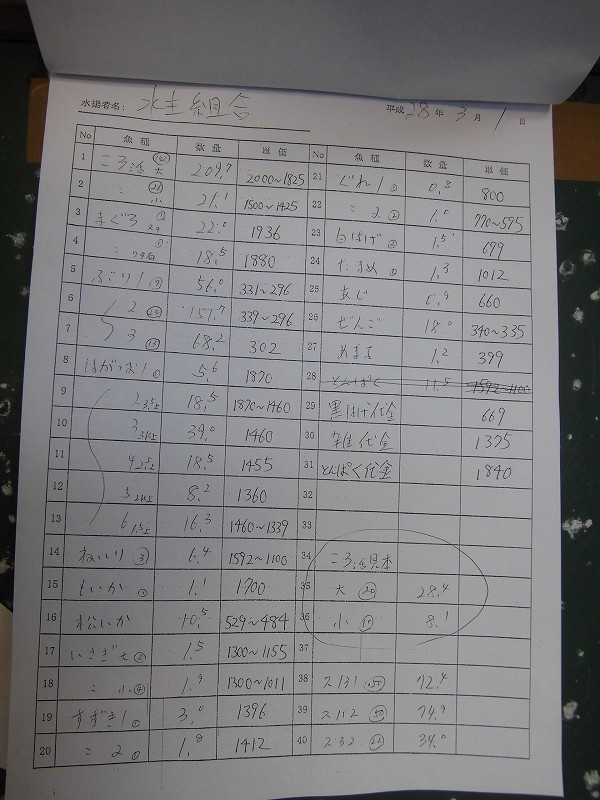 水揚者名: 水主組合
平成 28 年 3 月 1 日
No 魚種 数量 単価 No 魚種 数量 単価
1 大 209.7 2000~1825 21 ぐれ1 0.8 800
2 〃 小 21.1 1500~1425 22 〃 2 1.0 770~595
3 まぐろ 22.0 1936 23 白はげ 1.5 699
4 〃 18.5 1880 24 だるめ 1.3 1012
5 ぶり1 56.0 331~296 25 あじ 0.9 660
6 2 151.7 339~296 26 ぜんご 18.0 340~335
7 3 68.2 302 27 1.2 399
8 はがつお1 5.6 1870 28 とんぱく 11.5 1592~1100
9 2 18.5 1870~1460 29 黒はげ代金 669
10 3 39.0 1460 30 雑代金 1375
11 4 18.5 1455 31 とんぱく代金 1840
12 5 8.2 1360 32
13 6 16.3 1460~1339 33
14 ねいり ③ 6.4 1592~1100 34 見本
15 もいか 1.1 1700 35 大 ⑳ 28.4
16 松いか 10.5 529~484 36 小 8.1
17 いさぎ大 1.5 1300~1155 37
18 〃 小 ④ 1.9 1300~1011 38 72.4
19 すずき1 3.0 1396 39 74.9
20 〃 2 1.8 1412 40 34.0